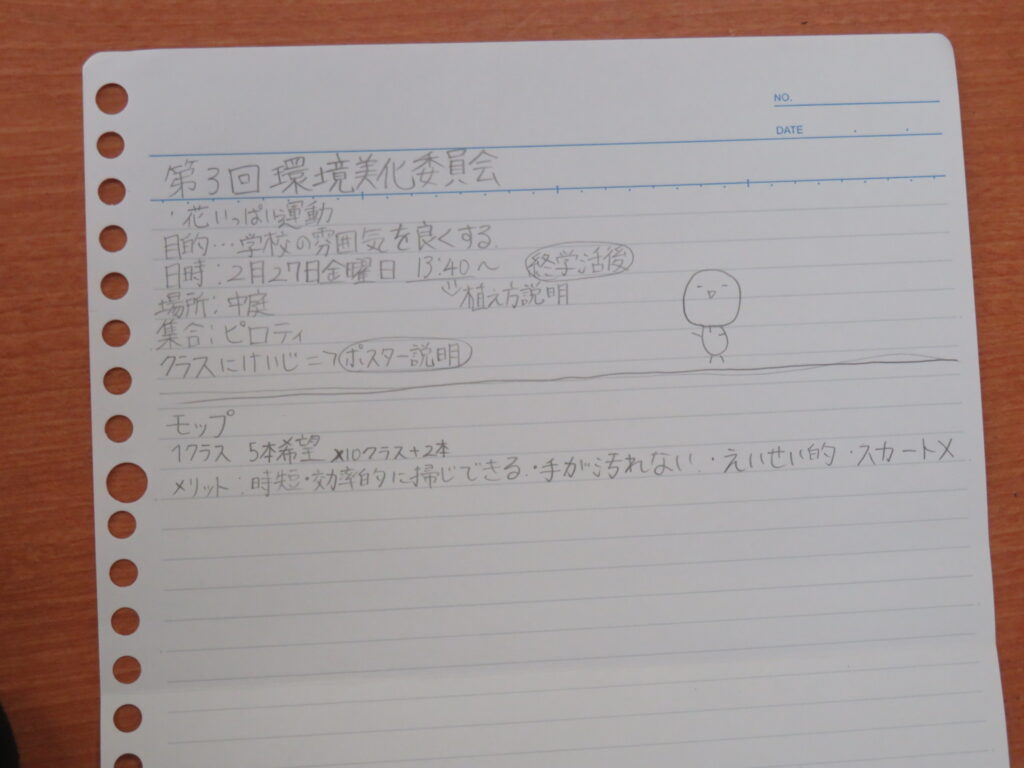 NO.
DATE
第3回環境美化委員会
・花いっぱい運動
目的…学校の雰囲気を良くする.
日時:2月27日金曜日 13:40〜 終学活後
植え方説明
場所:中庭
集合:ピロティ
クラスにけいじ=>ポスター説明
モップ
1クラス 5本希望 ×10クラス+2本
メリット:時短・効率的に掃じできる.・手が汚れない.・えいせい的・スカート×